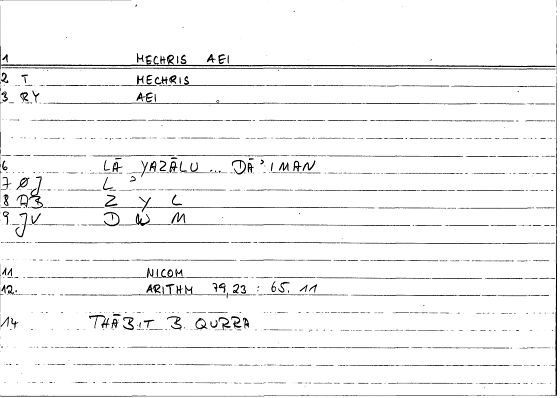 1 MECHRIS AEI
2 T MECHRIS
3 RY AEI
6 LĀ YAZĀLU ... DĀʾIMAN
7 ØJ L ʾ
8 AB Z Y L
9 JV D W M
11 NICOM
12. ARITHM 79,23 : 65.11
14 THĀBIT B. QURRA